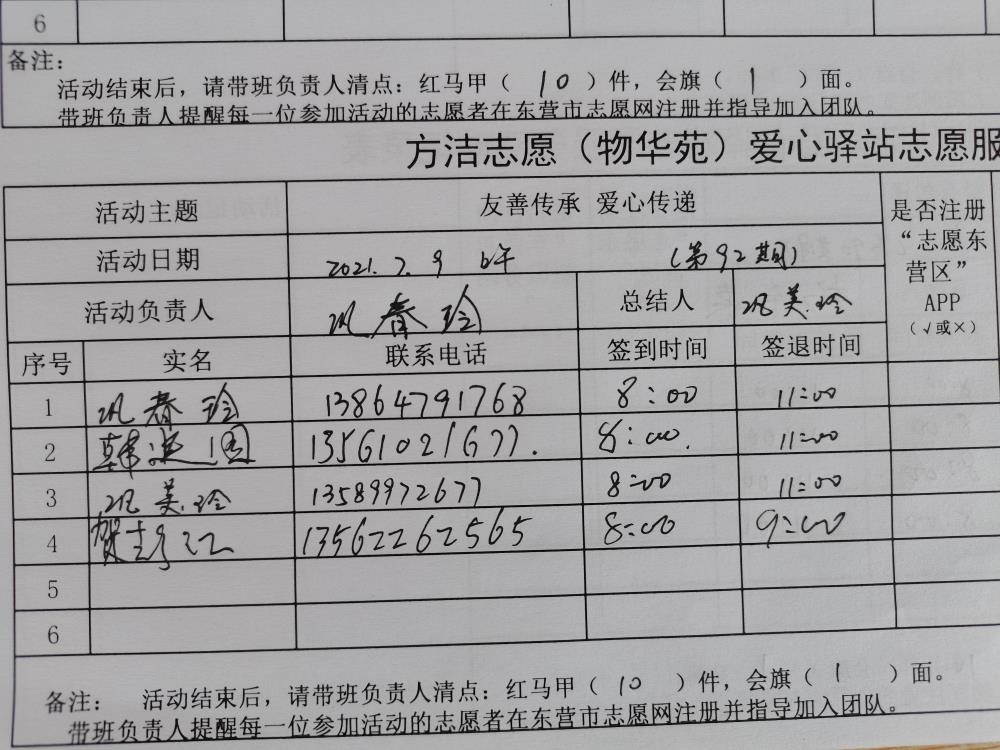 6
备注:
活动结束后，请带班负责人清点：红马甲（ 10 ）件，会旗（ 1 ）面。
带班负责人提醒每一位参加活动的志愿者在东营市志愿网注册并指导加入团队。
方洁志愿（物华苑）爱心驿站志愿服
活动主题 友善传承 爱心传递 是否注册“志愿东营区”APP（√或×）
活动日期 2021.7.9 (第92期)
活动负责人 巩春玲 总结人 巩美玲
序号 实名 联系电话 签到时间 签退时间
1 巩春玲 13864791768 8:00 11:00
2 13561021677. 8:00. 11:00
3 巩美玲 13589972677 8:00 11:00
4 13562262565 8:00 9:00
5
6
备注: 活动结束后，请带班负责人清点：红马甲（ 10 ）件，会旗（ 1 ）面。
带班负责人提醒每一位参加活动的志愿者在东营市志愿网注册并指导加入团队。